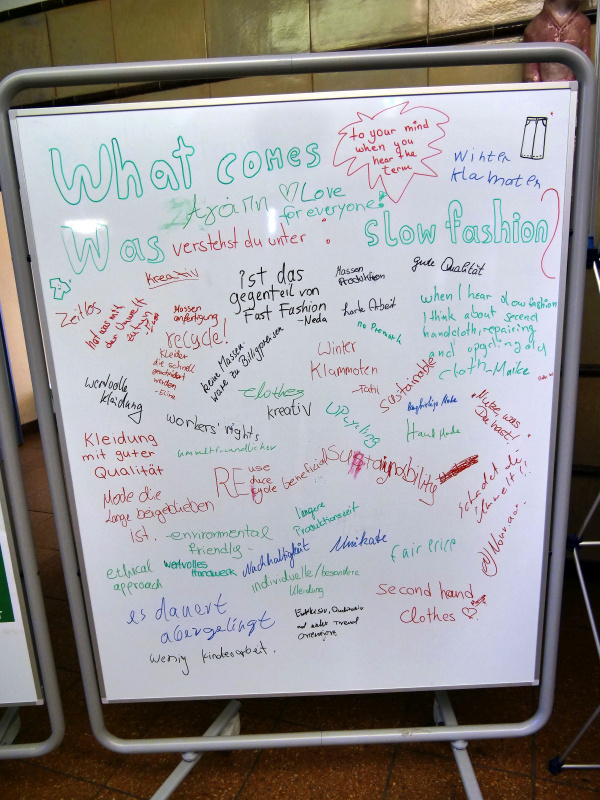 What comes
to your mind
when you
hear the
term
Winter
Klamoten
Love
for everyone
Was verstehst du unter :
slow fashion?
Kreativ
ist das
gegenteil von
Fast Fashion
-Neda
Massen
Produktion
gute Qualität
Zeitlos
hat was mit
der Umwelt
zutun
Massen
anfertigung
recycle!
harte Arbeit
no Primark
when I hear slow fashion
I think about second
handcloth, repairing
and upcycling old
cloth - Maike
Kleider
die schnell
geschreddert
werden
keine Massen-
ware zu Billigpreisen
Winter
Klammoten
Sustainable
wertvolle
Kleidung
clothes
kreativ
UP
cycling
Nutze was
Du hast!
workers' rights,
umweltfreundlicher
Hand Made
Kleidung
mit guter
Qualität
REuse
duce
cycle
beneficial
sustainability
schadet die
Umwelt!!
Mode die
lange beigeblieben
ist.
-environmental
friendly-
längere
Produktionszeit
ethical
approach
wertvolles
Handwerk
Nachhaltigkeit
Unikate
fair price
individuelle/besondere
Kleidung
second hand
clothes
es dauert
aber gelingt
wenig kinderarbeit.